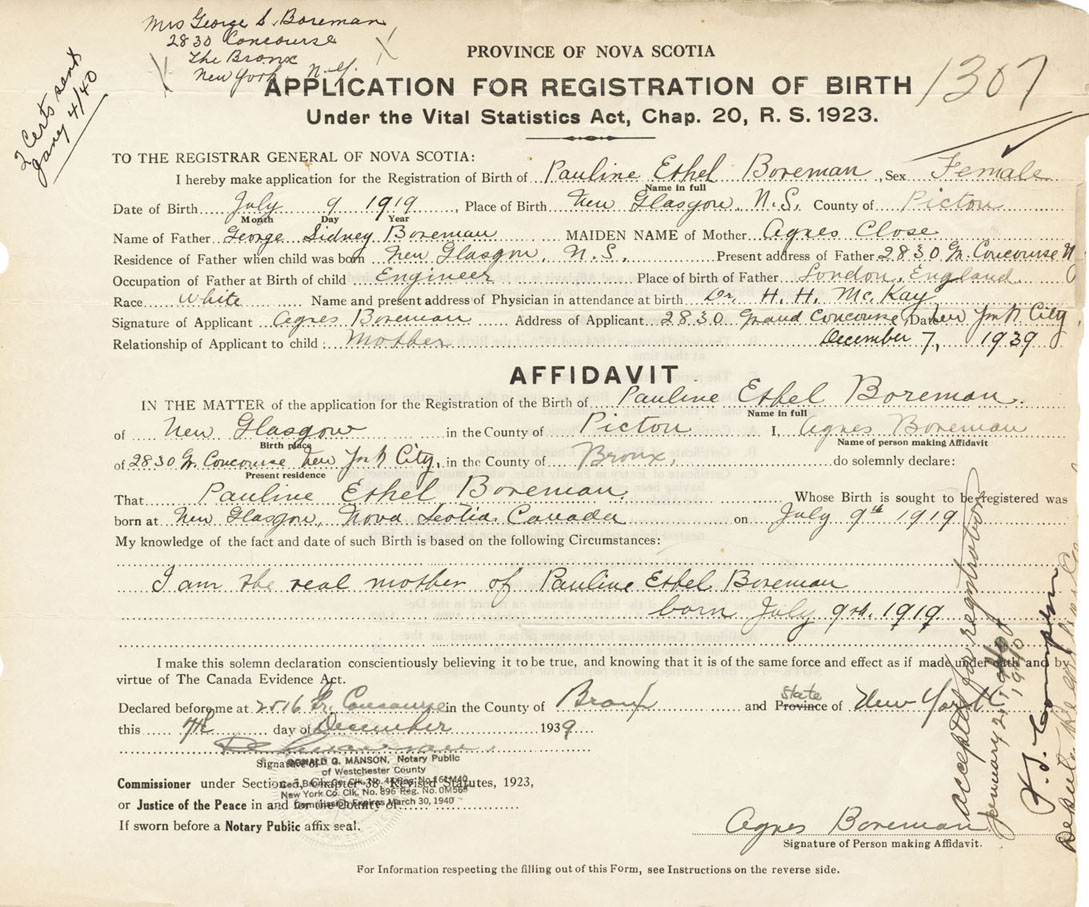 Mrs George S. Boreman
2830 Concourse
The Bronx
New York N.Y.
2 Certs sent
Jany 4/40
PROVINCE OF NOVA SCOTIA
APPLICATION FOR REGISTRATION OF BIRTH
1307
Under the Vital Statistics Act, Chap. 20, R. S. 1923.
TO THE REGISTRAR GENERAL OF NOVA SCOTIA:
I hereby make application for the Registration of Birth of Pauline Ethel Boreman, Sex Female
Name in full
Date of Birth July 9 1919, Place of Birth New Glasgow, N.S. County of Pictou
Month Day Year
Name of Father George Sidney Boreman MAIDEN NAME of Mother Agnes Close
Residence of Father when child was born New Glasgow, N.S., Present address of Father 2830 Gr. Concourse N
Occupation of Father at Birth of child Engineer Place of birth of Father London, England
Race White Name and present address of Physician in attendance at birth Dr. H. H. McKay
Signature of Applicant Agnes Boreman Address of Applicant 2830 Grand Concourse, Date New York City
Relationship of Applicant to child: Mother December 7, 1939
AFFIDAVIT
IN THE MATTER of the application for the Registration of the Birth of Pauline Ethel Boreman.
Name in full
of New Glasgow in the County of Pictou I, Agnes Boreman
Birth place Name of person making Affidavit
of 2830 Gr. Concourse New York City, in the County of Bronx, do solemnly declare:
Present residence
That Pauline Ethel Boreman Whose Birth is sought to be registered was
born at New Glasgow, Nova Scotia Canada on July 9th 1919
My knowledge of the fact and date of such Birth is based on the following Circumstances:
I am the real mother of Pauline Ethel Boreman
born July 9th, 1919
I make this solemn declaration conscientiously believing it to be true, and knowing that it is of the same force and effect as if made under oath and by
virtue of The Canada Evidence Act.
Declared before me at 2516 Gr. Concourse in the County of Bronx and Province State of New York
this 7th day of December 1939
Signature of
DONALD G. MANSON, Notary Public
of Westchester County
New York Co. Clk. No. 896 Reg. No.
Commission Expires March 30, 1940
Commissioner under Section 5, Chapter 38, Revised Statutes, 1923,
or Justice of the Peace in and for the County of
If sworn before a Notary Public affix seal.
Agnes Boreman
Signature of Person making Affidavit.
accepted for registration
January 2nd 1940
Deputy Registrar
For Information respecting the filling out of this Form, see Instructions on the reverse side.